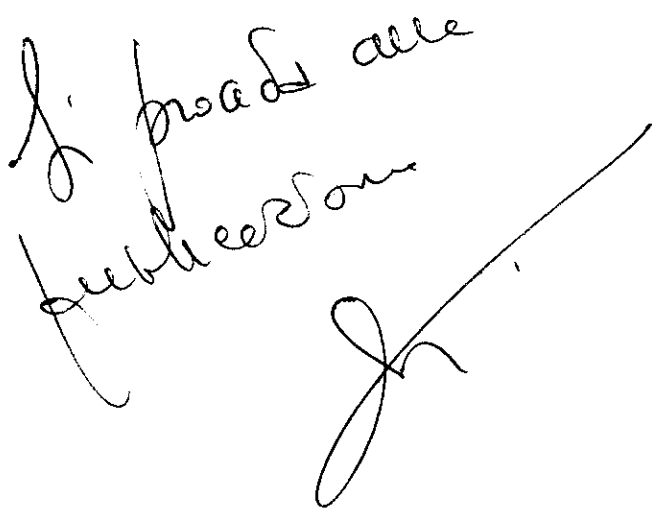 Si proceda alla
pubblicazione